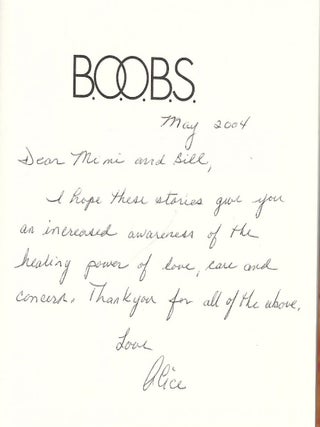 B.O.O.B.S.
May 2004
Dear Mimi and Bill,
I hope these stories give you
an increased awareness of the
healing power of love, care and
concern. Thankyou for all of the above.
Love
Alice